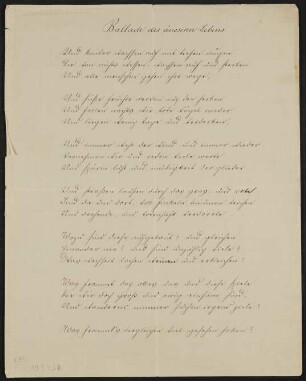 Ballade des äusseren Lebens
Und Kinder wachsen auf mit tiefen Augen
Die von nichts wissen, wachsen auf und sterben
Und alle Menschen gehen ihre Wege.
Und süsse Früchte werden aus den herben
Und fallen nachts wie todte Vögel nieder
Und liegen wenig Tage und verderben.
Und immer weht der Wind und immer wieder
Vernehmen wir und reden viele Worte
Und spüren Lust und Müdigkeit der Glieder
Und Strassen laufen durch das Gras, und Orte
Sind da und dort, voll Fackeln Bäumen Teichen
Und drohende, und todtenhaft verdorrte..
Wozu sind diese aufgebaut? und gleichen
Einander nie? und sind unzählig viele?
Was wechselt Lachen Weinen und Erbleichen?
Was frommt das alles uns und diese Spiele
Die wir doch gross und ewig einsam sind
Und wandernd nimmer suchen irgend Ziele?
Was frommt's dergleichen viel gesehen haben?